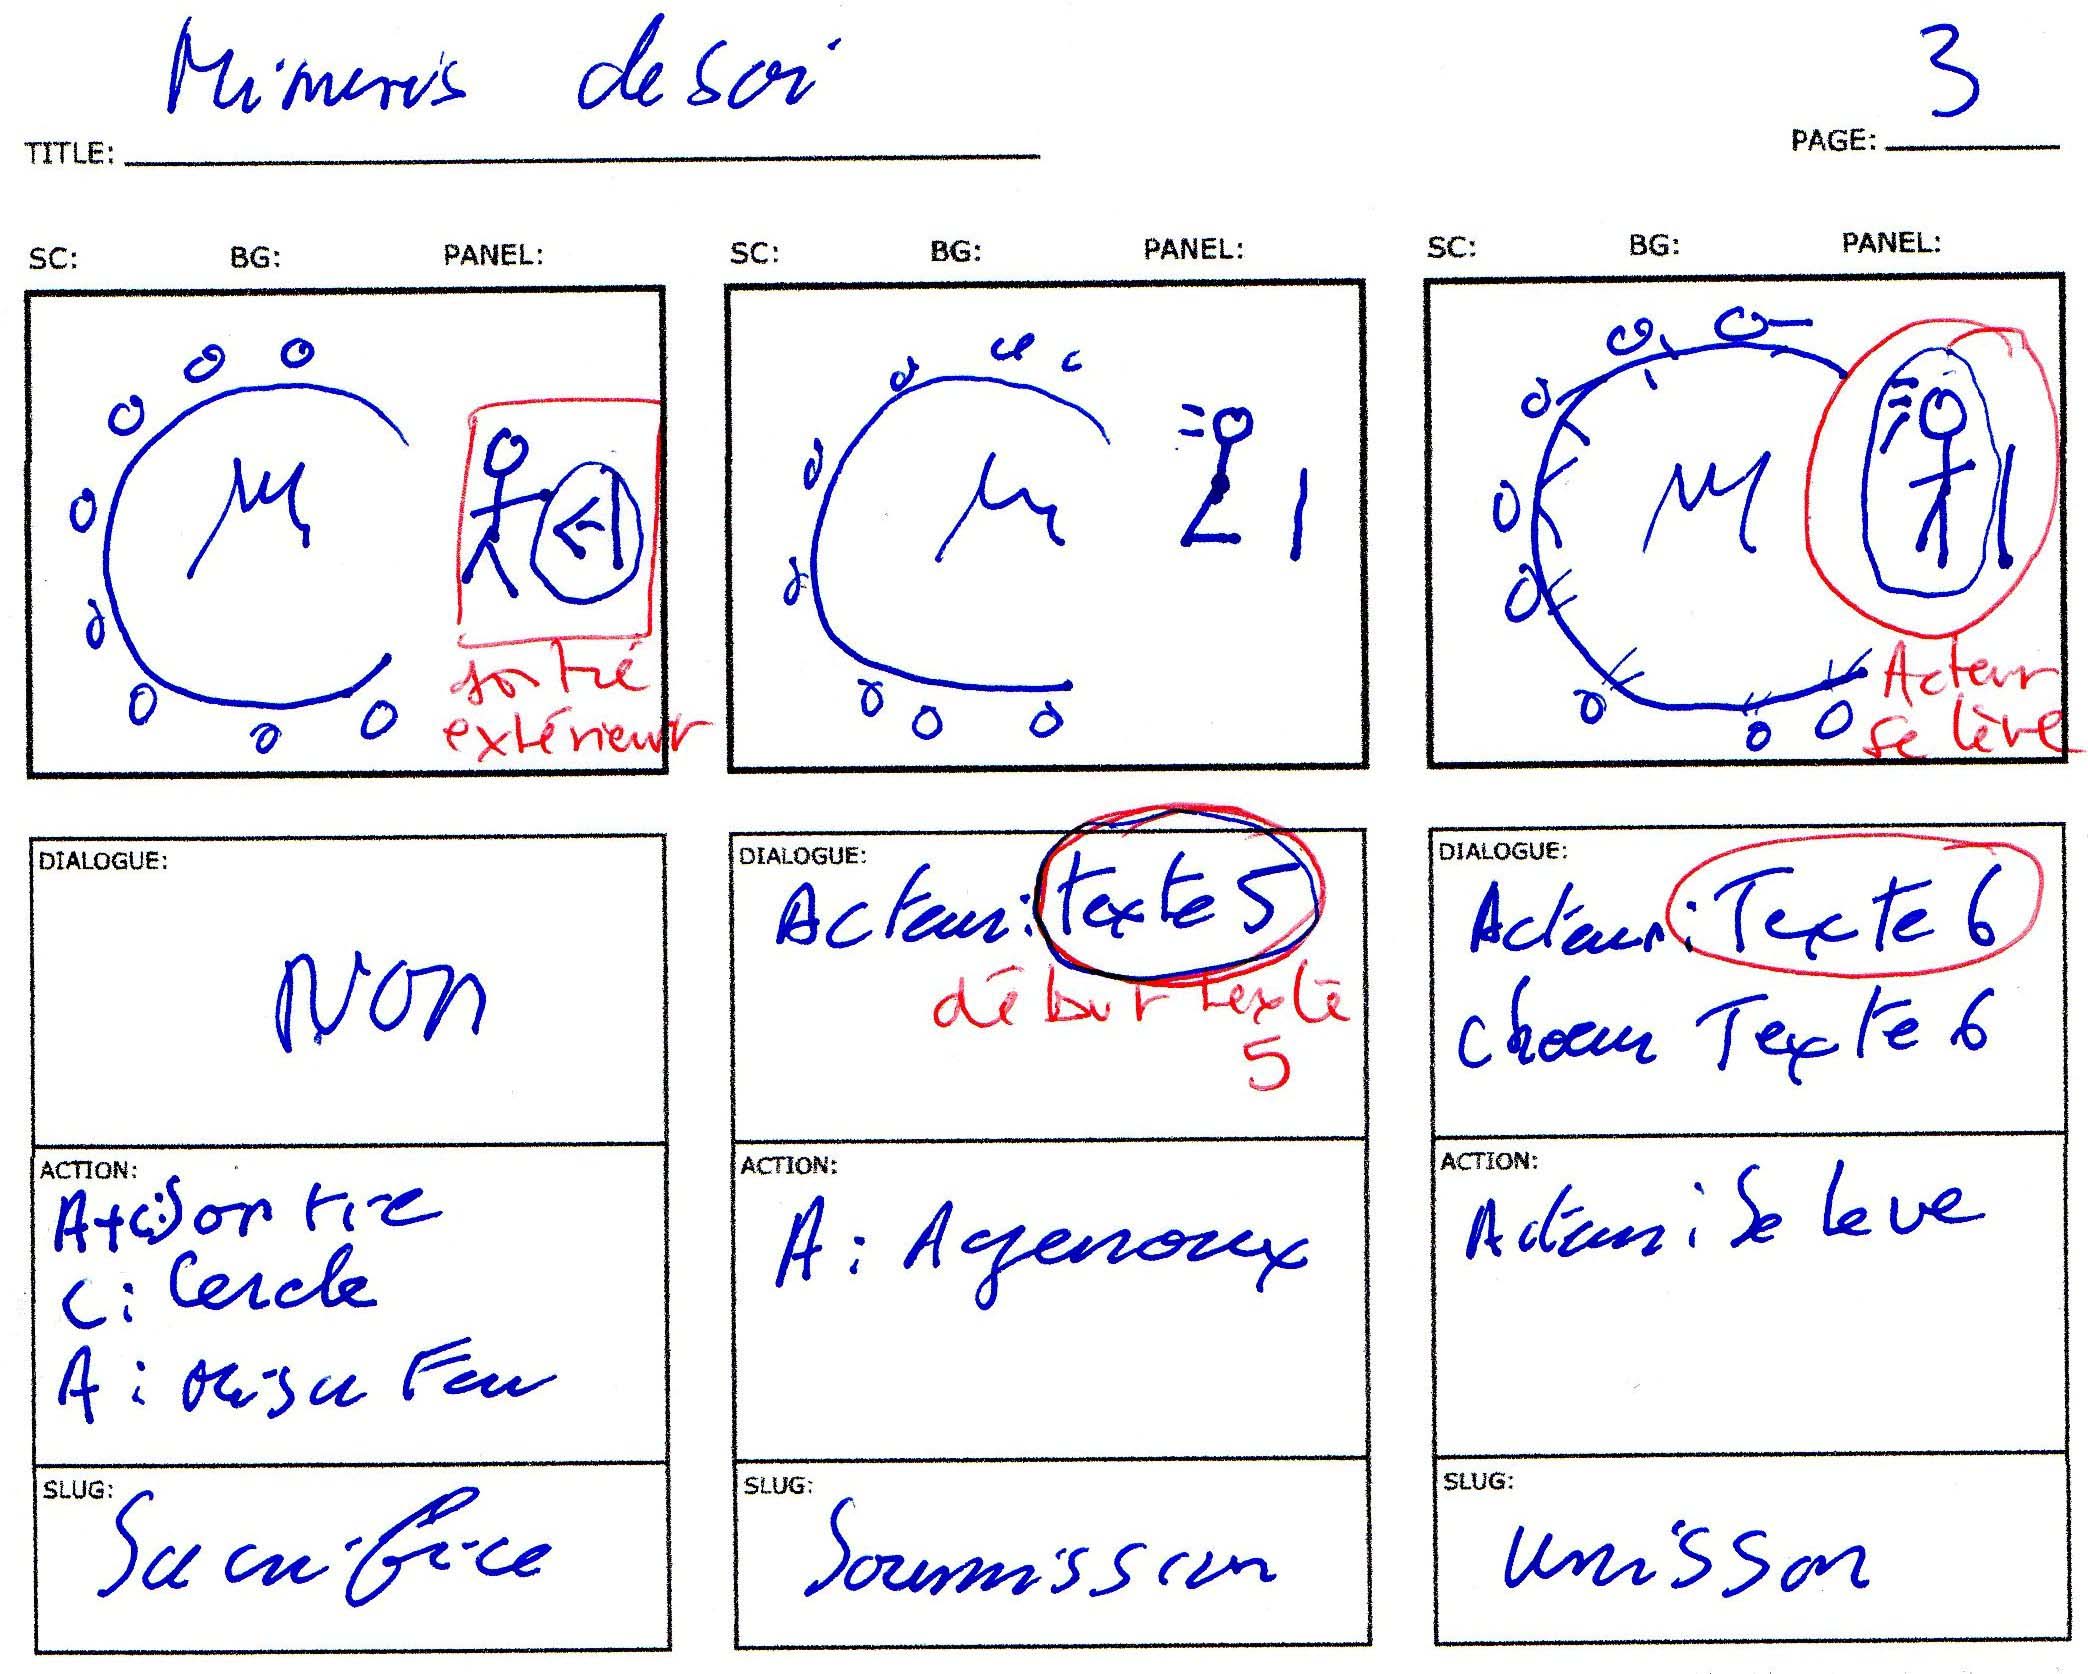 Mimesis de soi
3
TITLE:
PAGE:
SC: BG: PANEL:
SC: BG: PANEL:
SC: BG: PANEL:
sortie
extérieur
Acteur
se lève
DIALOGUE:
Non
ACTION:
A+C: Sortie
C: Cercle
A: Feu
SLUG:
Sacrifice
DIALOGUE:
Acteur: texte 5
début texte
5
ACTION:
A: A genoux
SLUG:
Soumission
DIALOGUE:
Acteur: Texte 6
choeur Texte 6
ACTION:
Acteur: Se leve
SLUG:
unisson